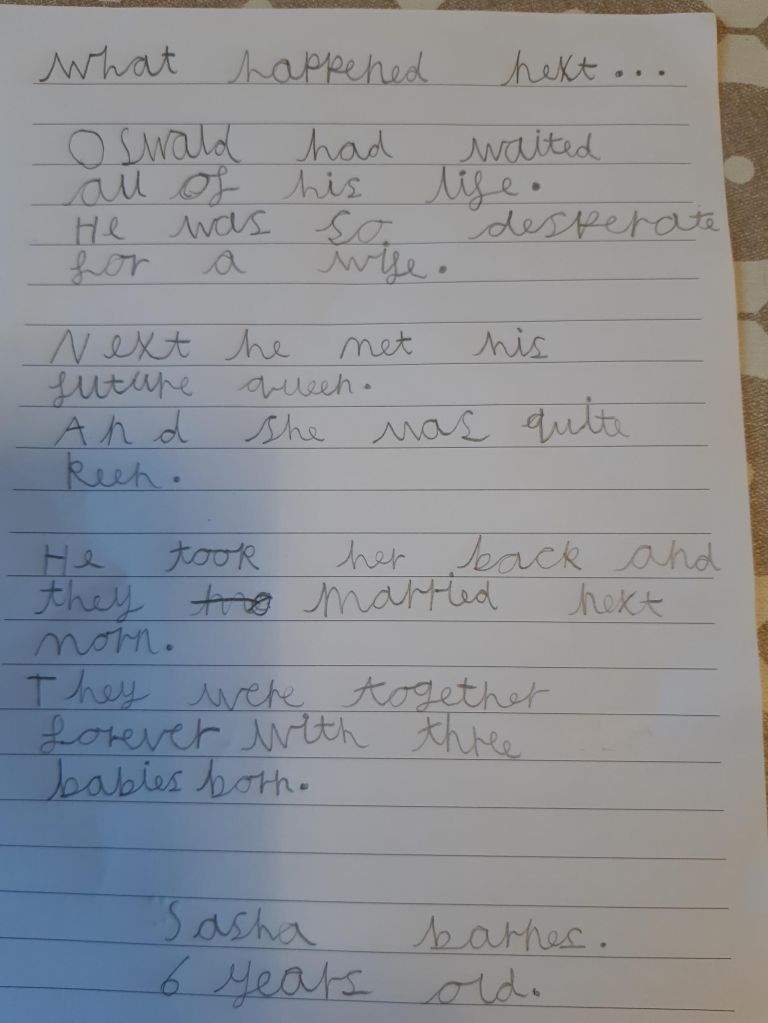 What happened next...
Oswald had waited
all of his life.
He was so desperate
for a wife.
Next he met his
future queen.
And she was quite
keen.
He took her back and
they married next
morn.
They were together
forever with three
babies born.
Sasha barnes.
6 years old.